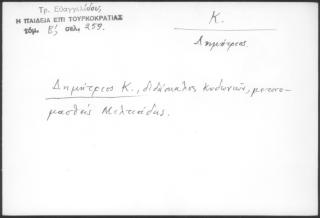 Τρ. Εὐαγγελίδου,
Η ΠΑΙΔΕΙΑ ΕΠΙ ΤΟΥΡΚΟΚΡΑΤΙΑΣ
τόμ. Β΄, σελ. 259.
Κ.
Δημήτριος.
Δημήτριος Κ., διδάσκαλος Κυδωνιῶν, μετονο-
μασθείς Μιλτιάδης.